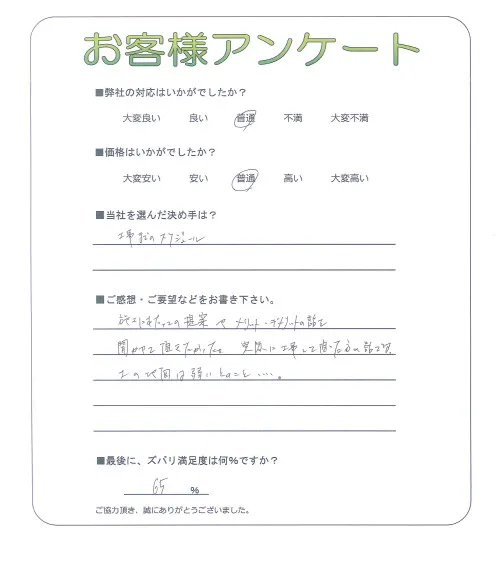 お客様アンケート
■弊社の対応はいかがでしたか？
大変良い 良い 普通 不満 大変不満
■価格はいかがでしたか？
大変安い 安い 普通 高い 大変高い
■当社を選んだ決め手は？
工事までのスケジュール
■ご感想・ご要望などをお書き下さい。
施工にあたっての提案やメリット・デメリットの話を
聞かせて頂きたかった。実際に工事して頂いた方の話では
この地面は弱いとのこと…。
■最後に、ズバリ満足度は何％ですか？
65 ％
ご協力頂き、誠にありがとうございました。